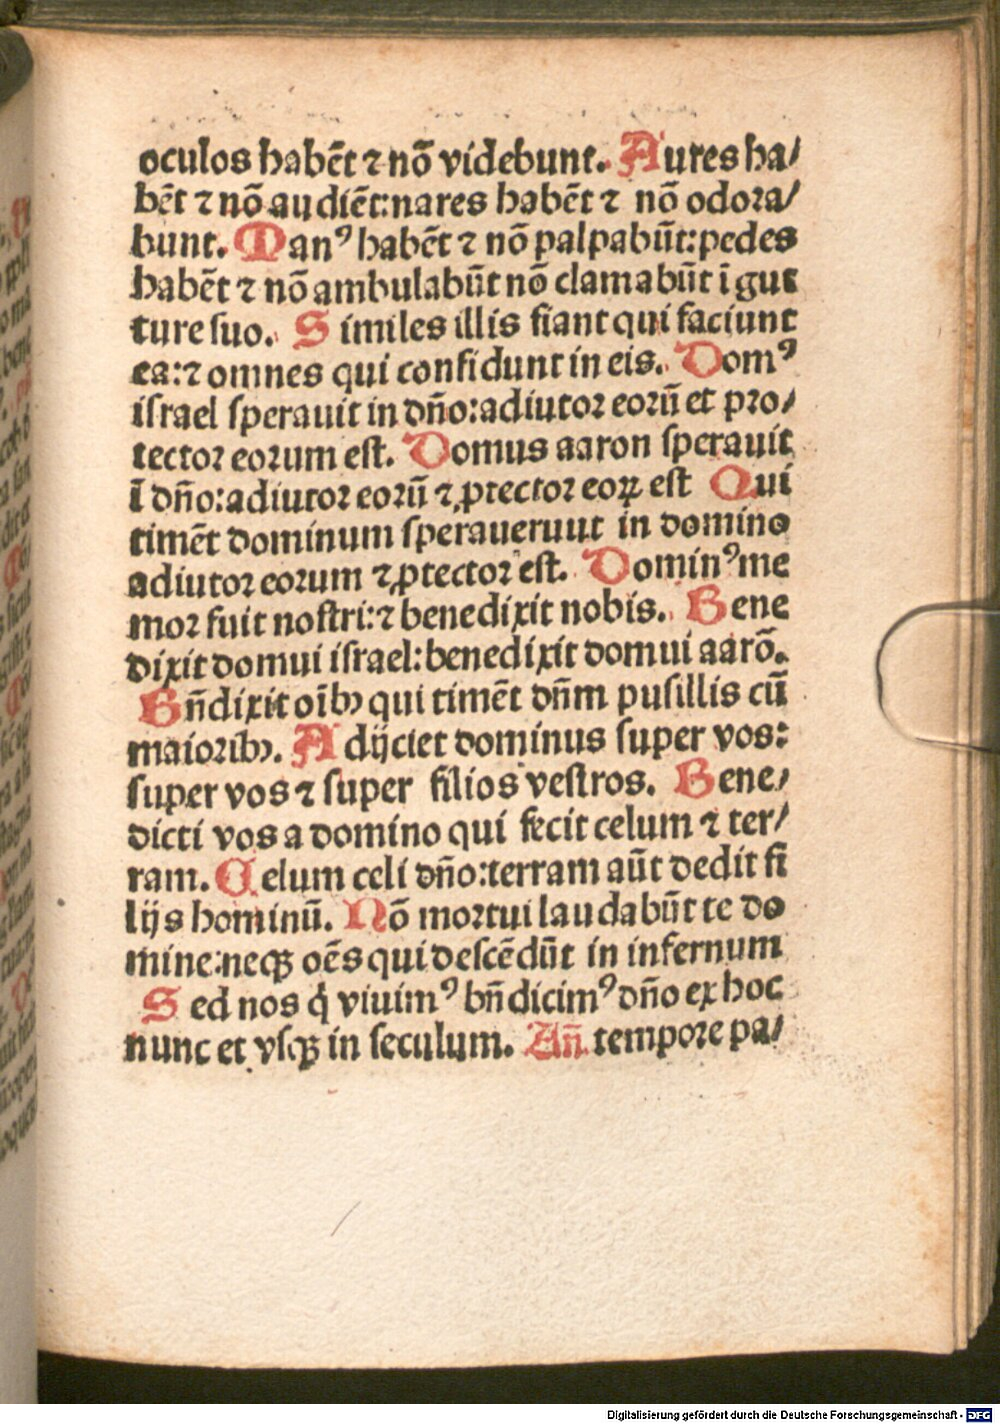 oculos habēt ⁊ nō videbunt. Aures ha/
bēt ⁊ nō audiēt: nares habēt ⁊ nō odora/
bunt. Manꝰ habēt ⁊ nō palpabūt: pedes
habēt ⁊ nō ambulabūt nō clamabūt ī gut
ture suo. Similes illis fiant qui faciunt
ea: ⁊ omnes qui confidunt in eis. Domꝰ
israel sperauit in dño: adiutor eorū et pro/
tector eorum est. Domus aaron sperauit
ī dño: adiutor eorū ⁊ ꝓtector eoꝝ est Qui
timēt dominum sperauerunt in domino
adiutor eorum ⁊ ꝓtector est. Dominꝰ me
mor fuit nostri: ⁊ benedixit nobis. Bene
dixit domui israel: benedixit domui aarō.
Bñdixit oībꝫ qui timēt dñm pusillis cū
maioribꝫ. Adijciet dominus super vos:
super vos ⁊ super filios vestros. Bene/
dicti vos a domino qui fecit celum ⁊ ter/
ram. Celum celi dño: terram aūt dedit fi
lijs hominū. Nō mortui laudabūt te do
mine: neqꝫ oēs qui descēdūt in infernum
Sed nos q̇ viuimꝰ bñdicimꝰ dño ex hoc
nunc et vsqꝫ in seculum. Añ. tempore pa/
Digitalisierung gefördert durch die Deutsche Forschungsgemeinschaft - DFG